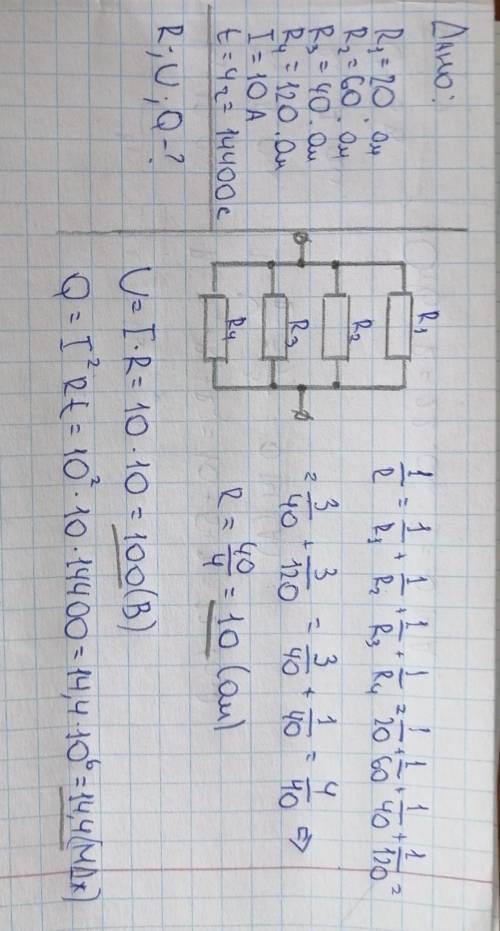 Дано:
R₁ = 20 · Ом
R₂ = 60 · Ом
R₃ = 40 · Ом
R₄ = 120 · Ом
I = 10 А
t = 4 ч = 14400 с
R; U; Q - ?
R₁
R₂
R₃
R₄
1/R = 1/R₁ + 1/R₂ + 1/R₃ + 1/R₄ = 1/20 + 1/60 + 1/40 + 1/120 =
= 3/40 + 3/120 = 3/40 + 1/40 = 4/40 ⇒
R = 40/4 = 10 (Ом)
U = I · R = 10 · 10 = 100 (В)
Q = I² R t = 10² · 10 · 14400 = 14,4 · 10⁶ = 14,4 (МДж)